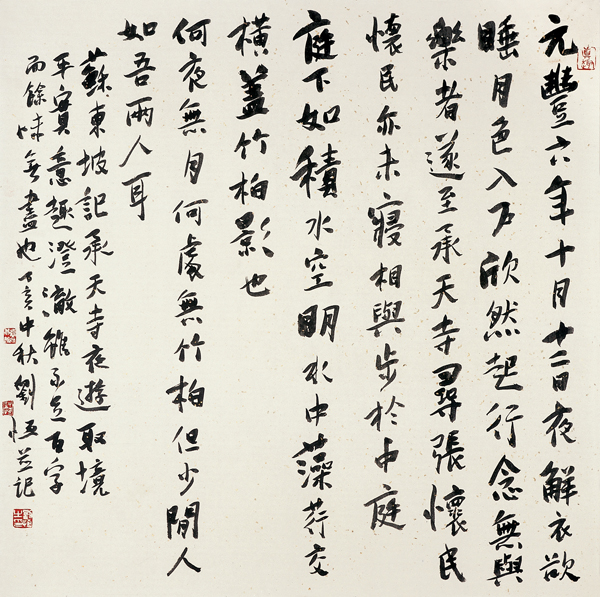 元豐六年十月十二日夜解衣欲
睡月色入戶欣然起行念無與
樂者遂至承天寺尋張懷民
懷民亦未寢相與步於中庭
庭下如積水空明水中藻荇交
橫蓋竹柏影也
何夜無月何處無竹柏但少閒人
如吾兩人耳
蘇東坡記承天寺夜遊取境
平實意趣澄澈雖不足百字
而餘味無盡也丁亥中秋劉恒并記